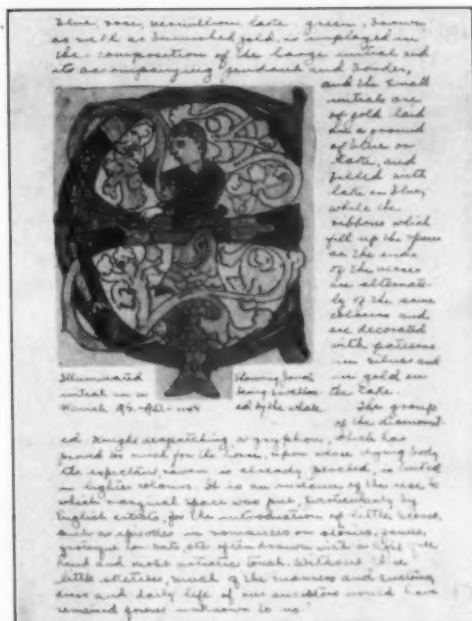 blue, rose, vermillion lake, green, brown
as well as burnished gold, is employed in
the composition of the large initial and
its accompanying pendant and border,
and the small
initials are
of gold laid
on a ground
of blue or
lake, and
filled with
lake or blue;
while the
ribbons which
fill up the spaces
at the ends
of the verses
are alternate-
ly of the same
colours and
are decorated
with patterns
in silver and
in gold on
the lake.
The group
of the dismount-
Illuminated
initial in a
French MS. A.D. 1144
Showing Jonah
being swallow-
ed by the whale
ed Knight despatching a gryphon, which has
proved too much for the horse, upon whose dying body
the expectant raven is already perched, is
in lighter colours. It is an instance of the use to
which marginal space was put, particularly by
English artists, for the introduction of little scenes,
such as episodes in romances or stories, games,
grotesque combats, etc. often drawn with a light
hand and most artistic touch. Without these
little sketches, much of the manners and customs,
dress and daily life of our ancestors would have
remained forever unknown to us.